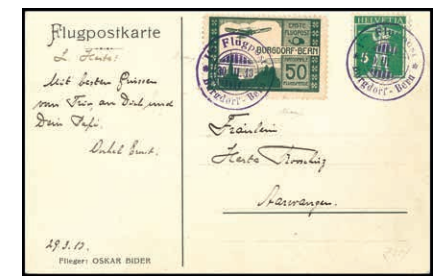 Flugpostkarte
L. Herta!
Mit besten Grüssen
von Trio, an Dich, und
Dein Papi,
Onkel Ernst.
29.3.13.
Flieger: OSKAR BIDER
ERSTE
FLUGPOST
BURGDORF-BERN
50
HELVETIA
Flugpost
Burgdorf-Bern
Flugpost
Burgdorf-Bern
Fräulein
Herta
Aarwangen.